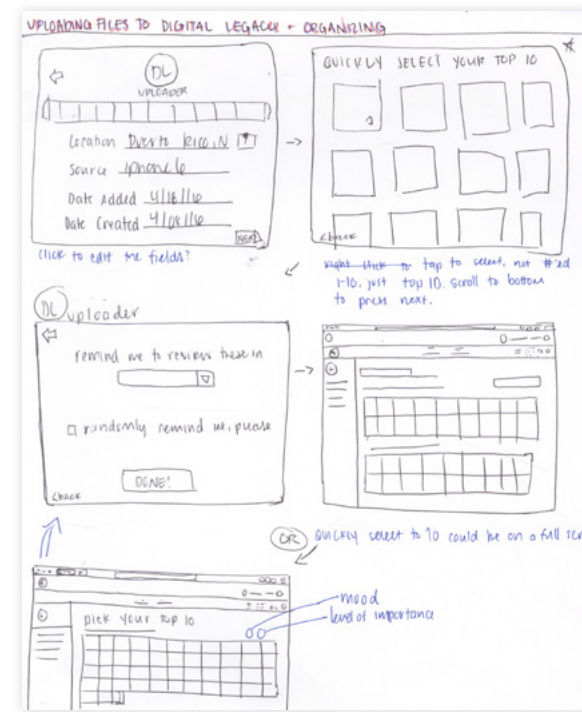 UPLOADING FILES TO DIGITAL LEGACY + ORGANIZING
DL
UPLOADER
Location Puerto Rico, N
Source iphone 6
Date Added 4/18/16
Date Created 4/08/16
NEXT
click to edit the fields?
QUICKLY SELECT YOUR TOP 10
<back
right click to tap to select, not #'ed
1-10, just top 10. scroll to bottom
to press next.
DL uploader
remind me to review these in
randomly remind me, please
DONE!
<back
OR QUICKLY select to 10 could be on a full scr
pick your top 10
mood
level of importance